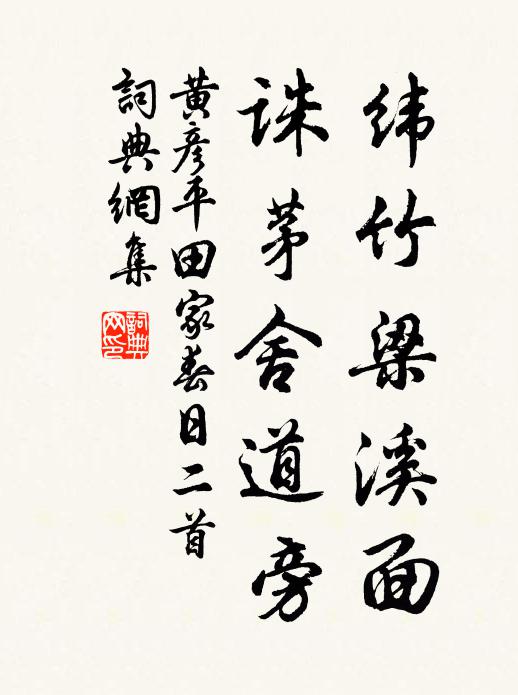 緯竹梁溪面
誅茅舍道旁
黃彥平田家春日二首
詞典網集
詞典网印